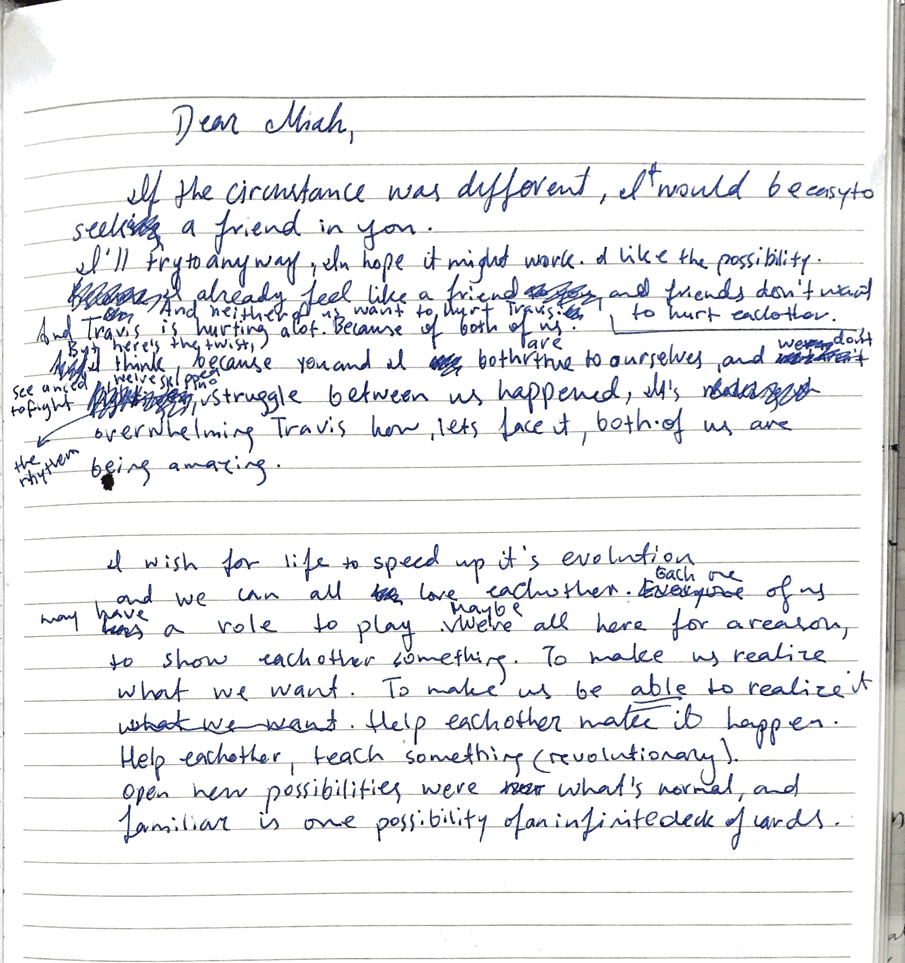 Dear Miah,
If the circumstance was different, It would be easy to
seek a friend in you.
I'll try to anyway, In hope it might work. I like the possibility.
I already feel like a friend and friends don't want
to hurt eachother.
And neither of us want to hurt Travis.
And Travis is hurting alot. Because of both of us.
But here's the twist,
I think, because you and I are both true to ourselves, and we don't
see a need
to fight
struggle between us happened, It's
the rhythem
overwhelming Travis how, lets face it, both of us are
being amazing.
I wish for life to speed up it's evolution
and we can all love eachother. Each one of us
may have a role to play. Maybe We're all here for a reason,
to show eachother something. To make us realize
what we want. To make us be able to realize it
what we want. Help eachother make it happen.
Help eachother, teach something (revolutionary).
Open new possibilities were what's normal, and
familiar is one possibility of an infinite deck of cards.